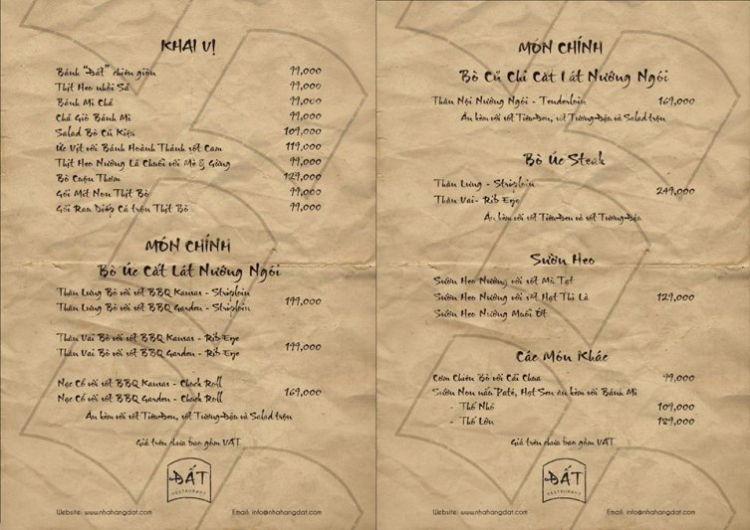 KHAI VỊ
Bánh "Đất" chiên giòn 99,000
Thịt Heo nhồi Sả 99,000
Bánh Mì Chả 99,000
Chả Giò Bánh Mì 99,000
Salad Bò Củ Kiệu 109,000
Ức Vịt với Bánh Hoành Thánh sốt Cam 119,000
Thịt Heo Nướng Lá Chuối với Mè & Gừng 99,000
Bò Cuộn Thơm 129,000
Gỏi Mít Non Thịt Bò 99,000
Gỏi Rau Diếp Cá trộn Thịt Bò 99,000
MÓN CHÍNH
Bò Úc Cắt Lát Nướng Ngói
Thăn Lưng Bò với sốt BBQ Kansas - Striploin
Thăn Lưng Bò với sốt BBQ Garden - Striploin
199,000
Thăn Vai Bò với sốt BBQ Kansas - Rib Eye
Thăn Vai Bò với sốt BBQ Garden - Rib Eye
199,000
Nạc Cổ với sốt BBQ Kansas - Chuck Roll
Nạc Cổ với sốt BBQ Garden - Chuck Roll
169,000
Ăn kèm với sốt Tiêu Đen, sốt Tương Đậu và Salad trộn
Giá trên chưa bao gồm VAT
ĐẤT
RESTAURANT
Website: www.nhahangdat.com Email: info@nhahangdat.com
MÓN CHÍNH
Bò Củ Chi Cắt Lát Nướng Ngói
Thăn Nội Nướng Ngói - Tenderloin 169,000
Ăn kèm với sốt Tiêu Đen, sốt Tương Đậu và Salad trộn
Bò Úc Steak
Thăn Lưng - Striploin
Thăn Vai - Rib Eye
249,000
Ăn kèm với sốt Tiêu Đen và sốt Tương Đậu
Sườn Heo
Sườn Heo Nướng với sốt Mù Tạt
Sườn Heo Nướng với sốt Hạt Thì Là 129,000
Sườn Heo Nướng Muối Ớt
Các Món Khác
Cơm Chiên Bò với Cải Chua 99,000
Sườn Non nấu Patê, Hạt Sen ăn kèm với Bánh Mì
- Thố Nhỏ 109,000
- Thố Lớn 189,000
Giá trên chưa bao gồm VAT
ĐẤT
RESTAURANT
Website: www.nhahangdat.com Email: info@nhahangdat.com